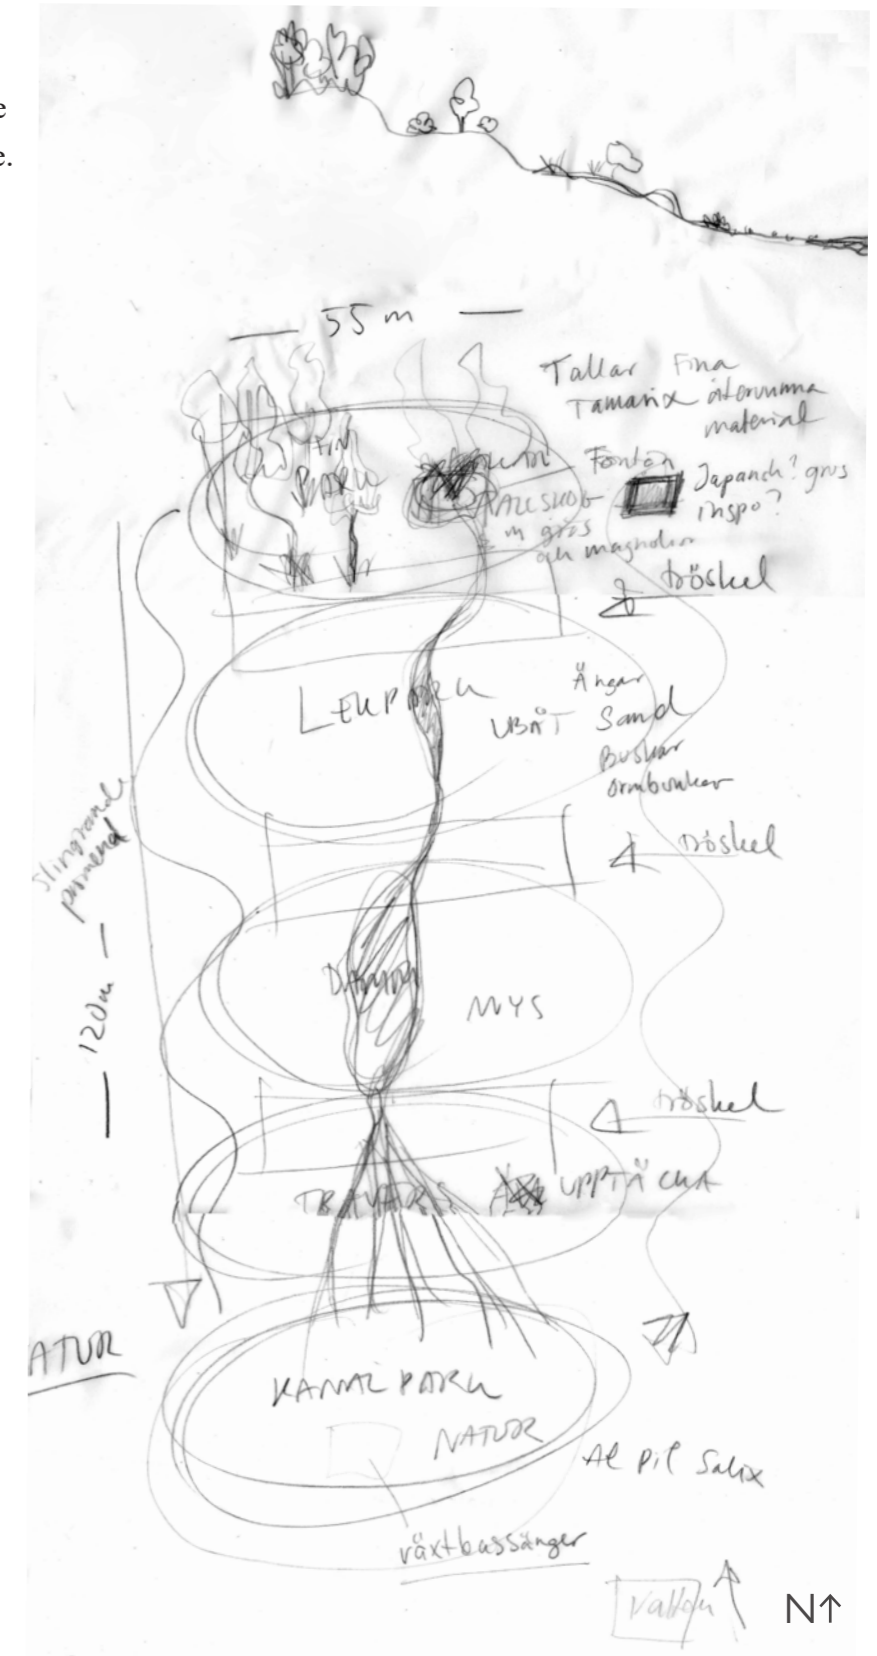 e
e.
55 m
Tallar Fina
Tamarix återvunna
material
FIN
PARK
Fontän
Japansk? grus
inspo?
m gräs
och magnolior
tröskel
LEKPARK
Ängar
UBÅT Sand
Buskar
ormbunkar
tröskel
Slingrande
promenad
120m
DAMM
MYS
tröskel
UPPTÄCKA
ATUR
KANALPARK
NATUR
Al Pil Salix
växtbassänger
Vatten
N↑